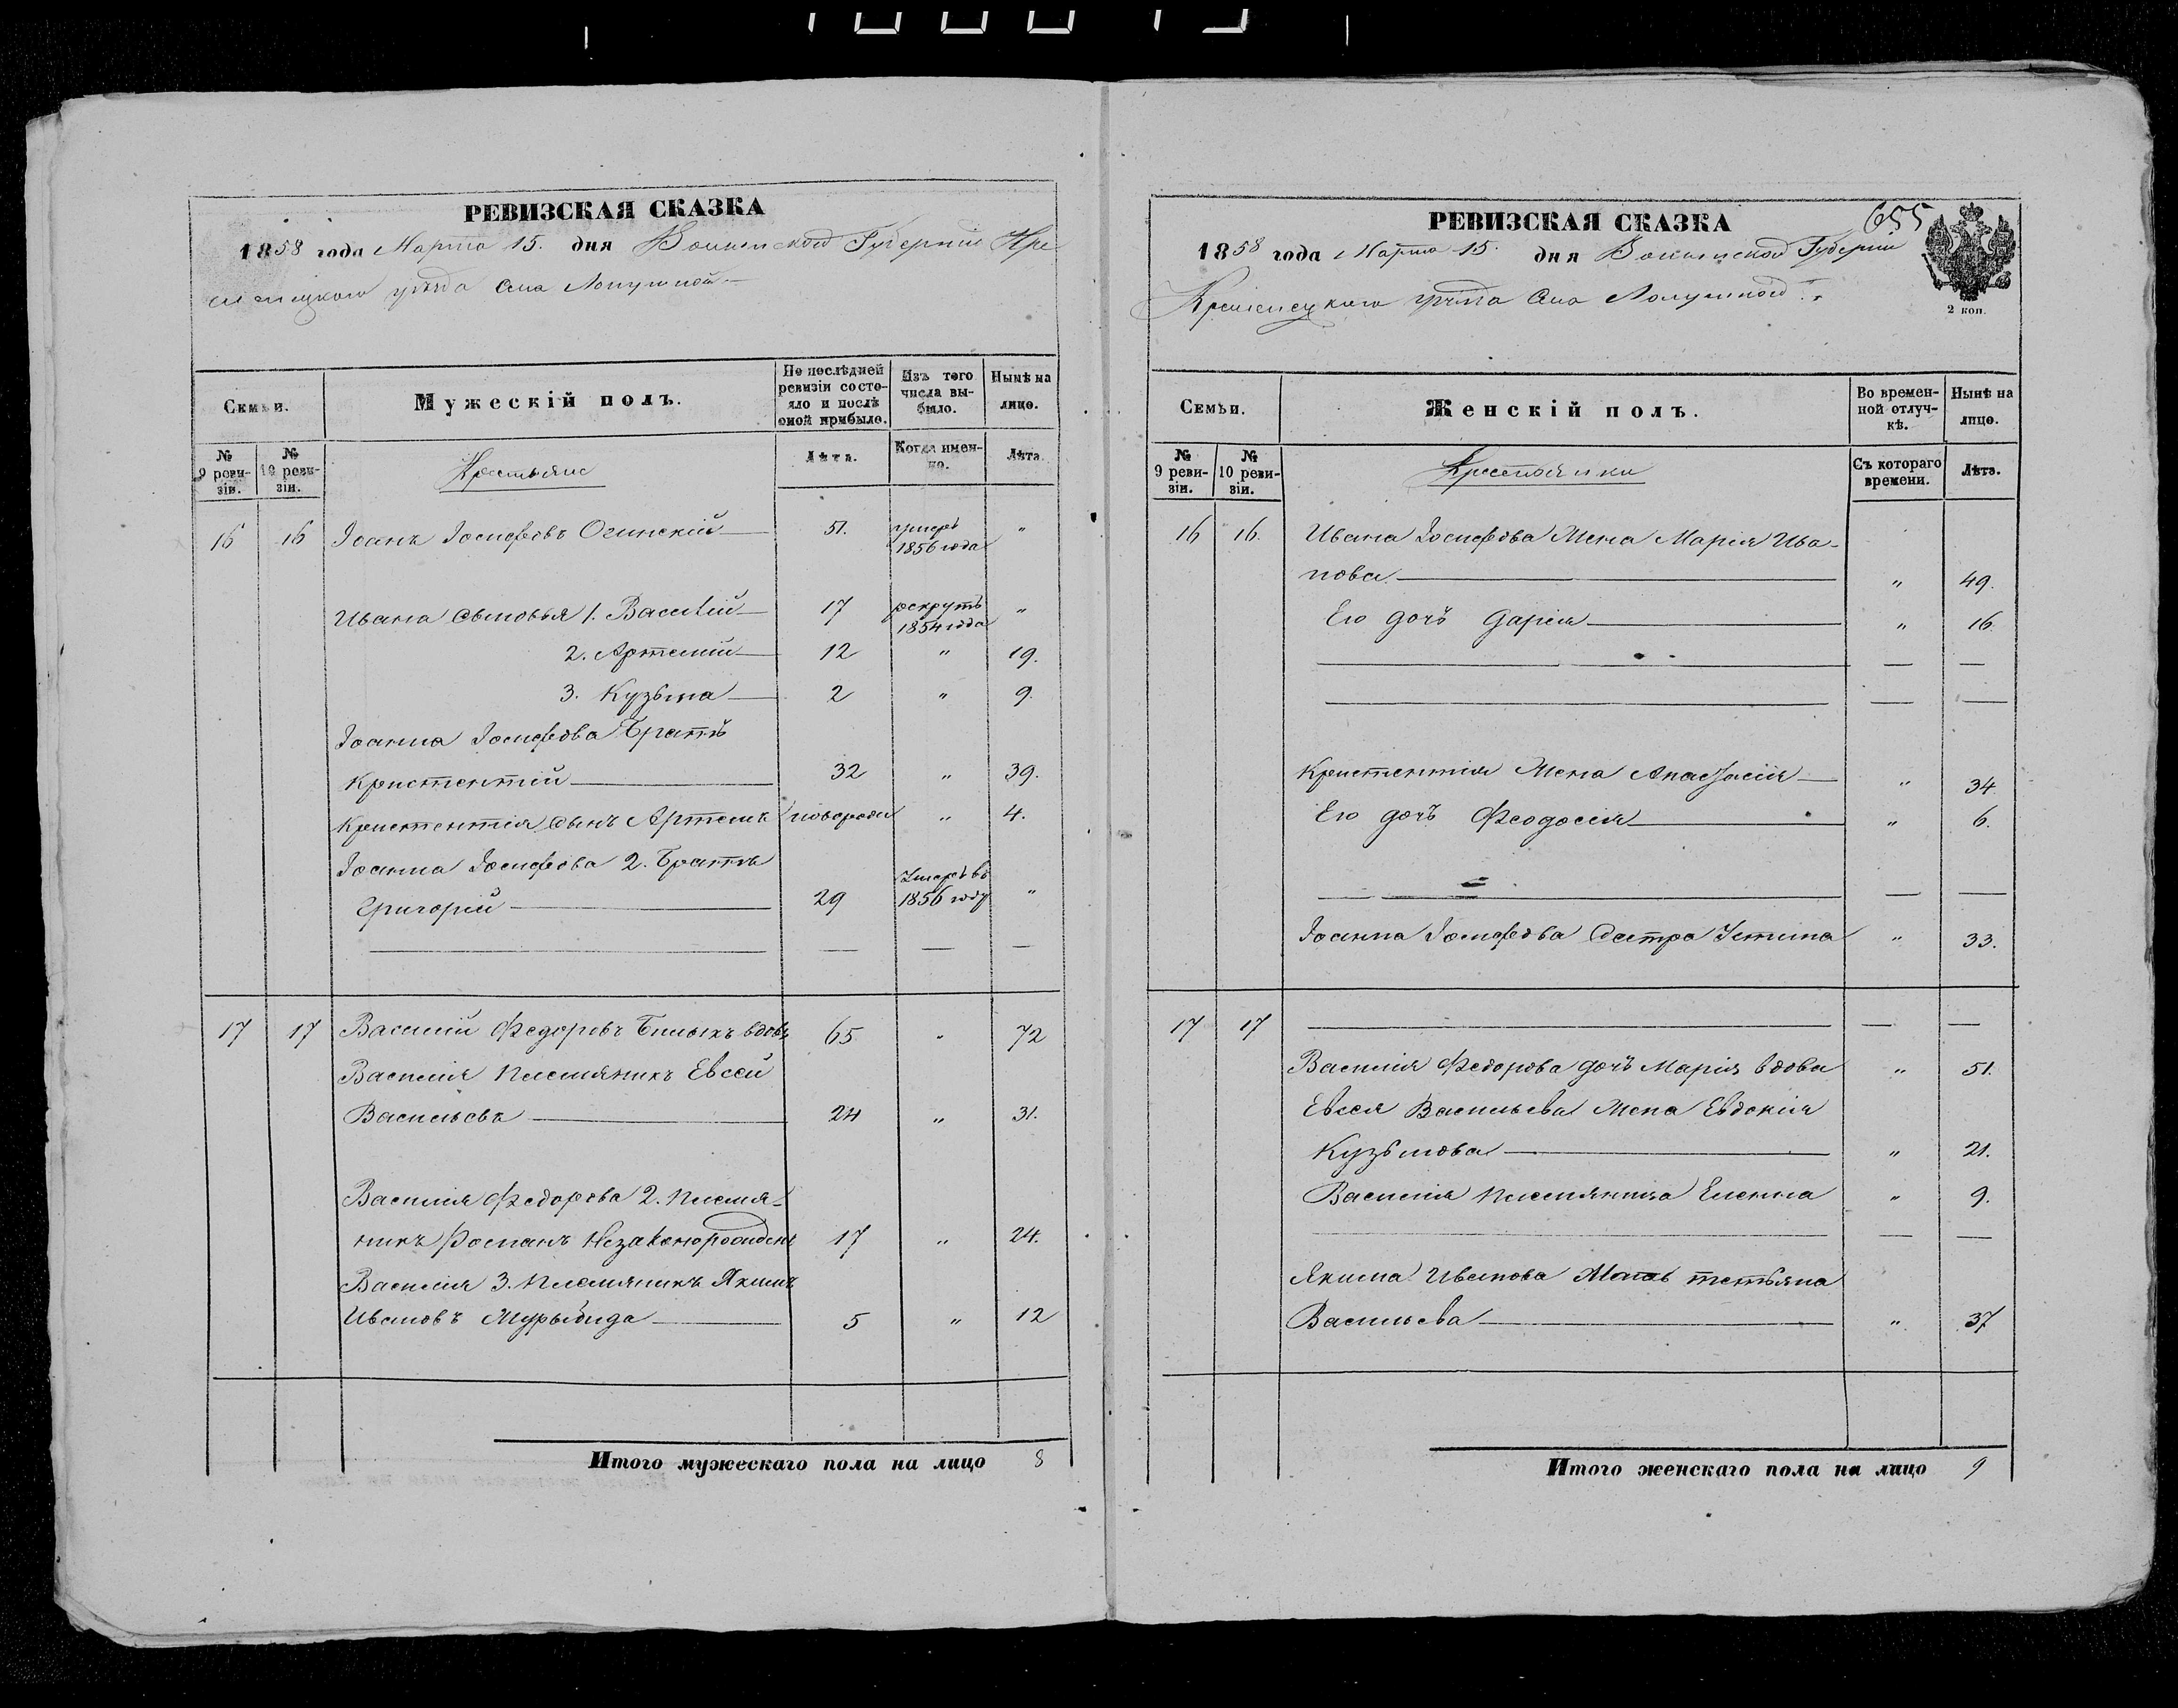 РЕВИЗСКАЯ СКАЗКА
1858 года Марта 15. дня Волынской Губерніи Кре
менецкого уѣзда Села Лопушной
Семьи.
Мужескій полъ.
По послѣдней ревизіи состояло и послѣ оной прибыло.
Изъ того числа выбыло.
Нынѣ на лицо.
№ 9 ревизіи.
№ 10 ревизіи.
Крестьяне
Лѣта.
Когда именно.
Лѣта
16 16 Іоанъ Іосифовъ Огинскій 51. умеръ 1856 года "
Ивана сыновья 1. Василій 17 рекрутъ 1854 года "
2. Артемій 12 " 19.
3. Кузьма 2 " 9.
Іоанна Іосифова Братъ
Кристентій 32 " 39.
Кристентія сынъ Артемъ новорожд " 4.
Іоанна Іосифова 2. Братъ
Григорій 29 Умеръ въ 1856 году "
17 17 Василій Федоровъ Билыкъ вдовъ 65 " 72
Василія Племянникъ Евсей
Васильевъ 24 " 31.
Василія Федорова 2. Племя-
никъ Романъ Незаконорожден 17 " 24.
Василія 3. Племяникъ Якимъ
Ивановъ Мурыбида 5 " 12
Итого мужескаго пола на лицо 8
655
РЕВИЗСКАЯ СКАЗКА
1858 года Марта 15. дня Волынской Губерніи
Кременецкого уѣзда Села Лопушной
2 коп.
Семьи.
Женскій полъ.
Во временной отлучкѣ.
Нынѣ на лицо.
№ 9 ревизіи.
№ 10 ревизіи.
Крестьянки
Съ котораго времени.
Лѣта.
16 16. Ивана Іосифова Жена Марія Ива-
нова " 49.
Его дочь Дарія " 16
Кристентія Жена Анастасія " 34
Его дочь Феодосія " 6.
Іоанна Іосифова Сестра Устина " 33.
17 17
Василія Федорова дочь Марія вдова " 51.
Евсея Васильева Жена Евдокія
Кузьмова " 21.
Василія Племянница Еленна " 9.
Якима Иванова Мать тетьяна
Васильева " 37
Итого женскаго пола на лицо 9